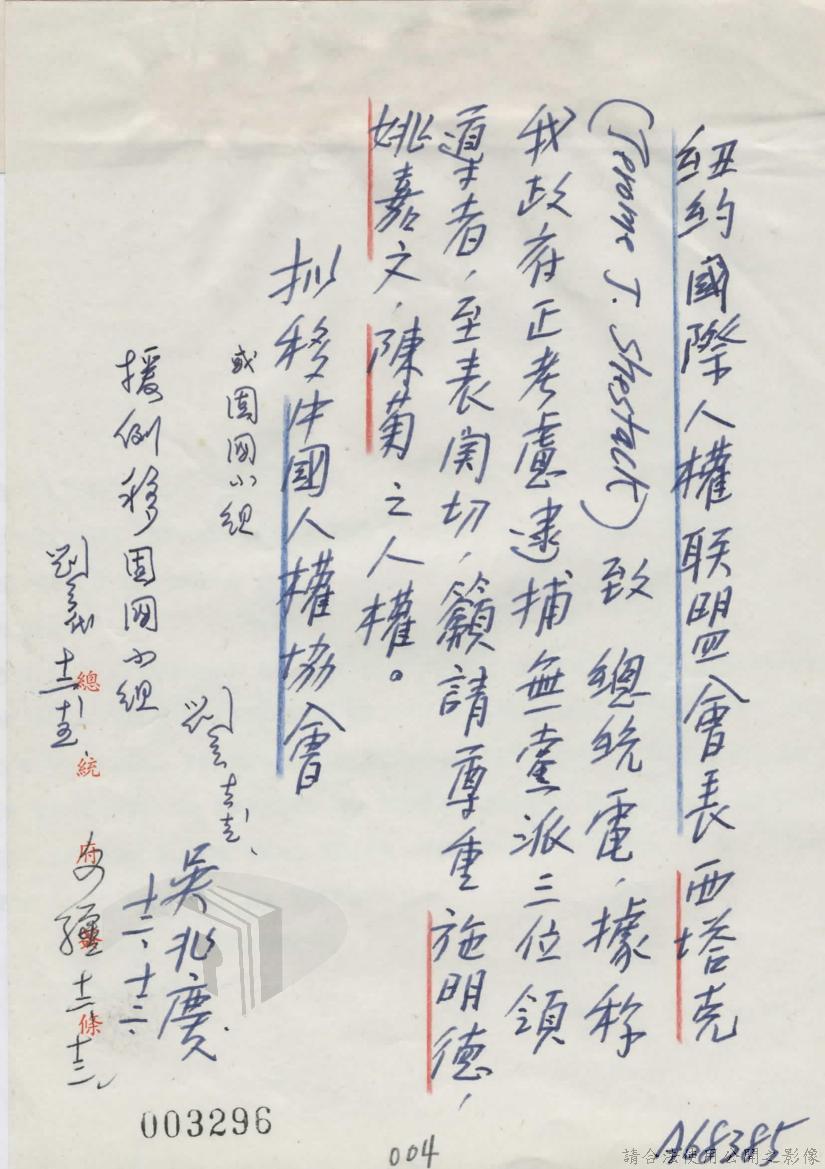 紐約國際人權联盟會長西塔克
(Jerome J. Shestack) 致總統電，據称
我政府正考慮逮捕無黨派三位領
導者，至表関切，籲請尊重施明德，
姚嘉文，陳菊之人權。
拟移中國人權協會
或固國小組
吳兆慶
十二、十二、
援例移固國小組
總統府 條
003296
004
A68385
請合法使用公開之影像